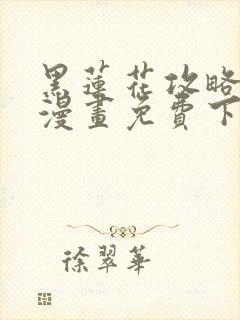 黑蓮花攻略
漫畫免費下
徐翠華